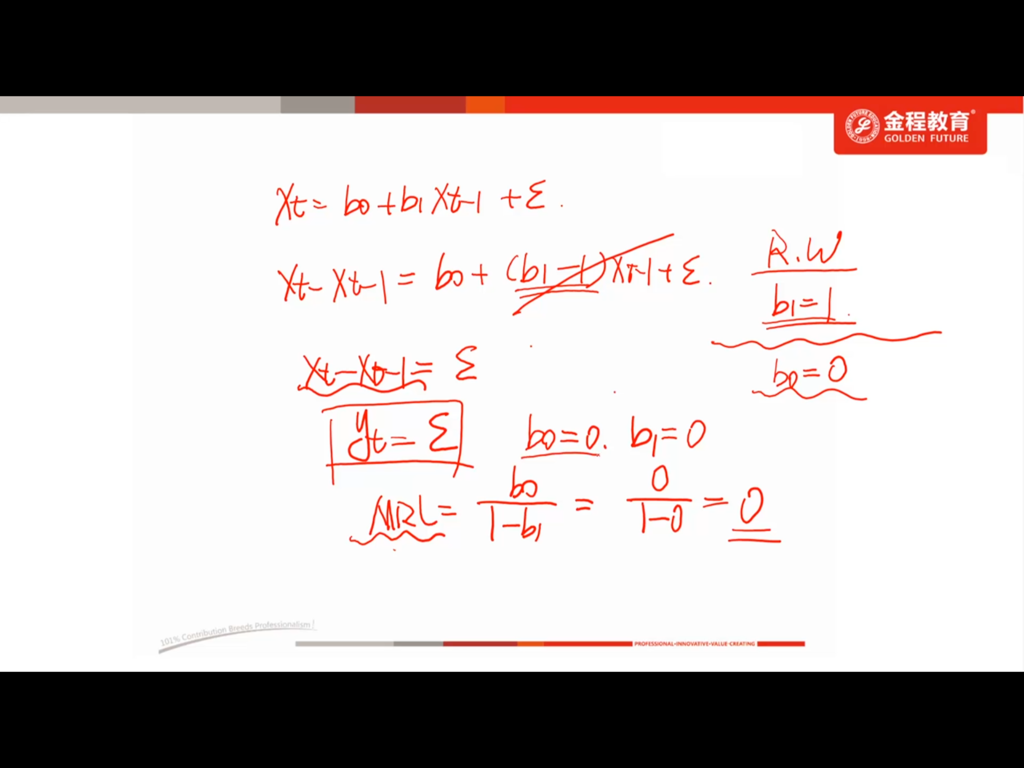 金程教育®
GOLDEN FUTURE
Xt = b0 + b1 Xt-1 + ε.
Xt - Xt-1 = b0 + (b1 - 1) Xt-1 + ε.
R.W
b1 = 1.
Xt - Xt-1 = ε
b0 = 0
yt = ε
b0 = 0. b1 = 0
MRL = b0 / (1 - b1) = 0 / (1 - 0) = 0
101% Contribution Breeds Professionalism!
PROFESSIONAL·INNOVATIVE·VALUE-CREATING